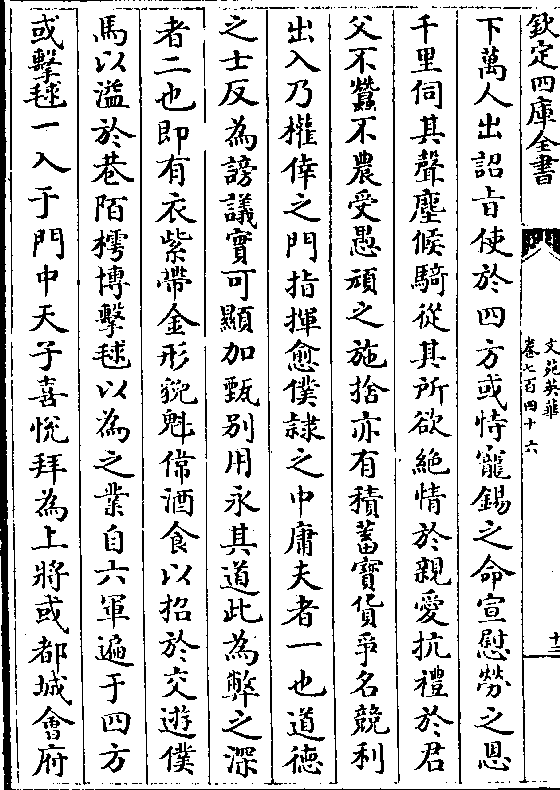 欽定四庫全書
文苑英華
卷七百四十六
十三
下萬人出詔旨使於四方或恃寵錫之命宣慰勞之恩
千里伺其聲塵候騎從其所欲絶情於親愛抗禮於君
父不蠶不農受愚頑之施捨亦有積蓄寳貨爭名競利
出入乃權倖之門指揮愈僕隷之中庸夫者一也道徳
之士反為謗議實可顯加甄别用永其道此為弊之深
者二也即有衣紫帶金形貌魁偉酒食以招於交逰僕
馬以溢於巷陌樗博擊毬以為之業自六軍遍于四方
或擊毬一入于門中天子喜悦拜為上將或都城會府